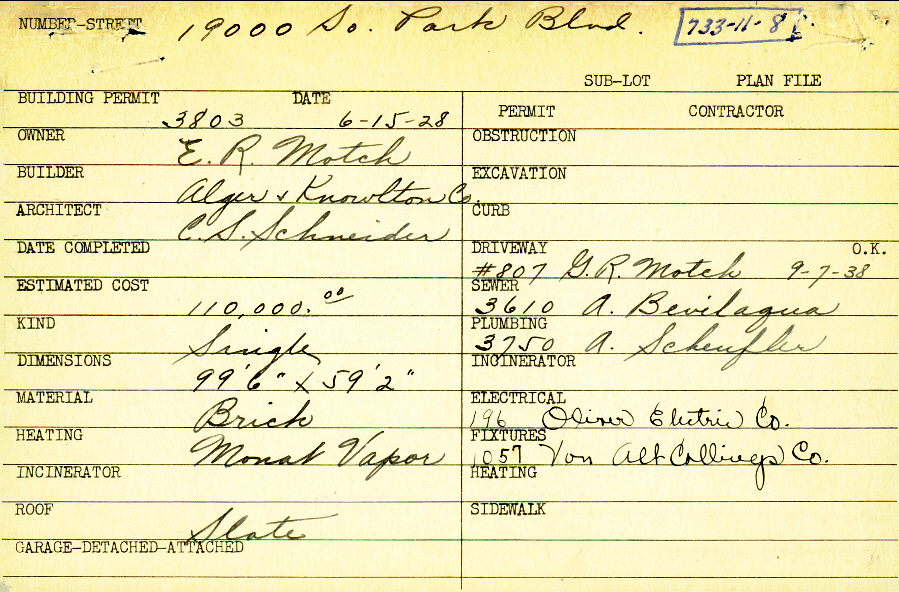 NUMBER-STREET 19000 So. Park Blvd. 733-11-8
SUB-LOT PLAN FILE
BUILDING PERMIT DATE
3803 6-15-28
PERMIT CONTRACTOR
OWNER
E. R. Motch
OBSTRUCTION
BUILDER
Alger & Knowlton Co.
EXCAVATION
ARCHITECT
C. S. Schneider
CURB
DATE COMPLETED
DRIVEWAY O.K.
#807 G. R. Motch 9-7-38
ESTIMATED COST
110,000.00
SEWER
3610 A. Bevilaqua
KIND
Single
PLUMBING
3750 A. Scheufler
DIMENSIONS
99'6" X 59'2"
INCINERATOR
MATERIAL
Brick
ELECTRICAL
196 Oliver Electric Co.
HEATING
Vapor
FIXTURES
1057 Von Alt Collings Co.
INCINERATOR
HEATING
ROOF
Slate
SIDEWALK
GARAGE-DETACHED-ATTACHED